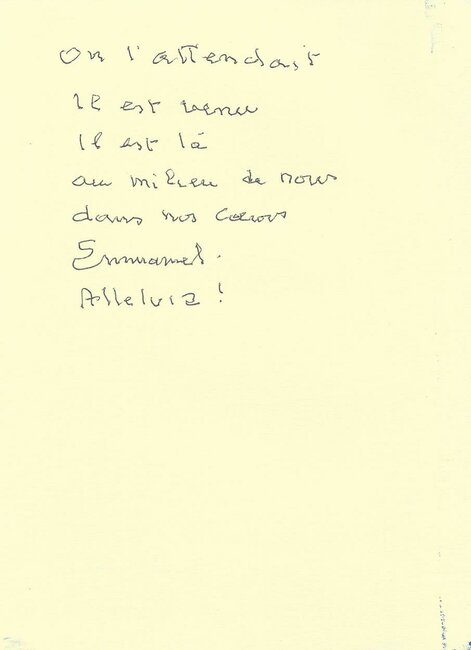 On l'attendait
Il est venu
Il est là
au milieu de nous
dans nos cœurs
Emmanuel.
Alleluia !